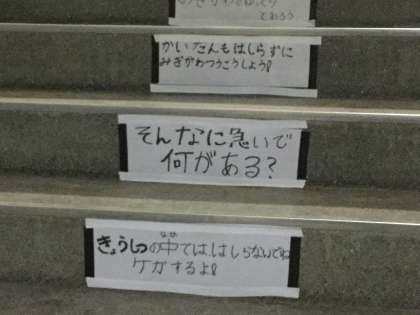 ておろう
かいだんもはしらずに
みぎがわつうこうしよう!
そんなに急いで
何がある?
きょうしつの中では、はしらないでね
なか
ケガするよ!